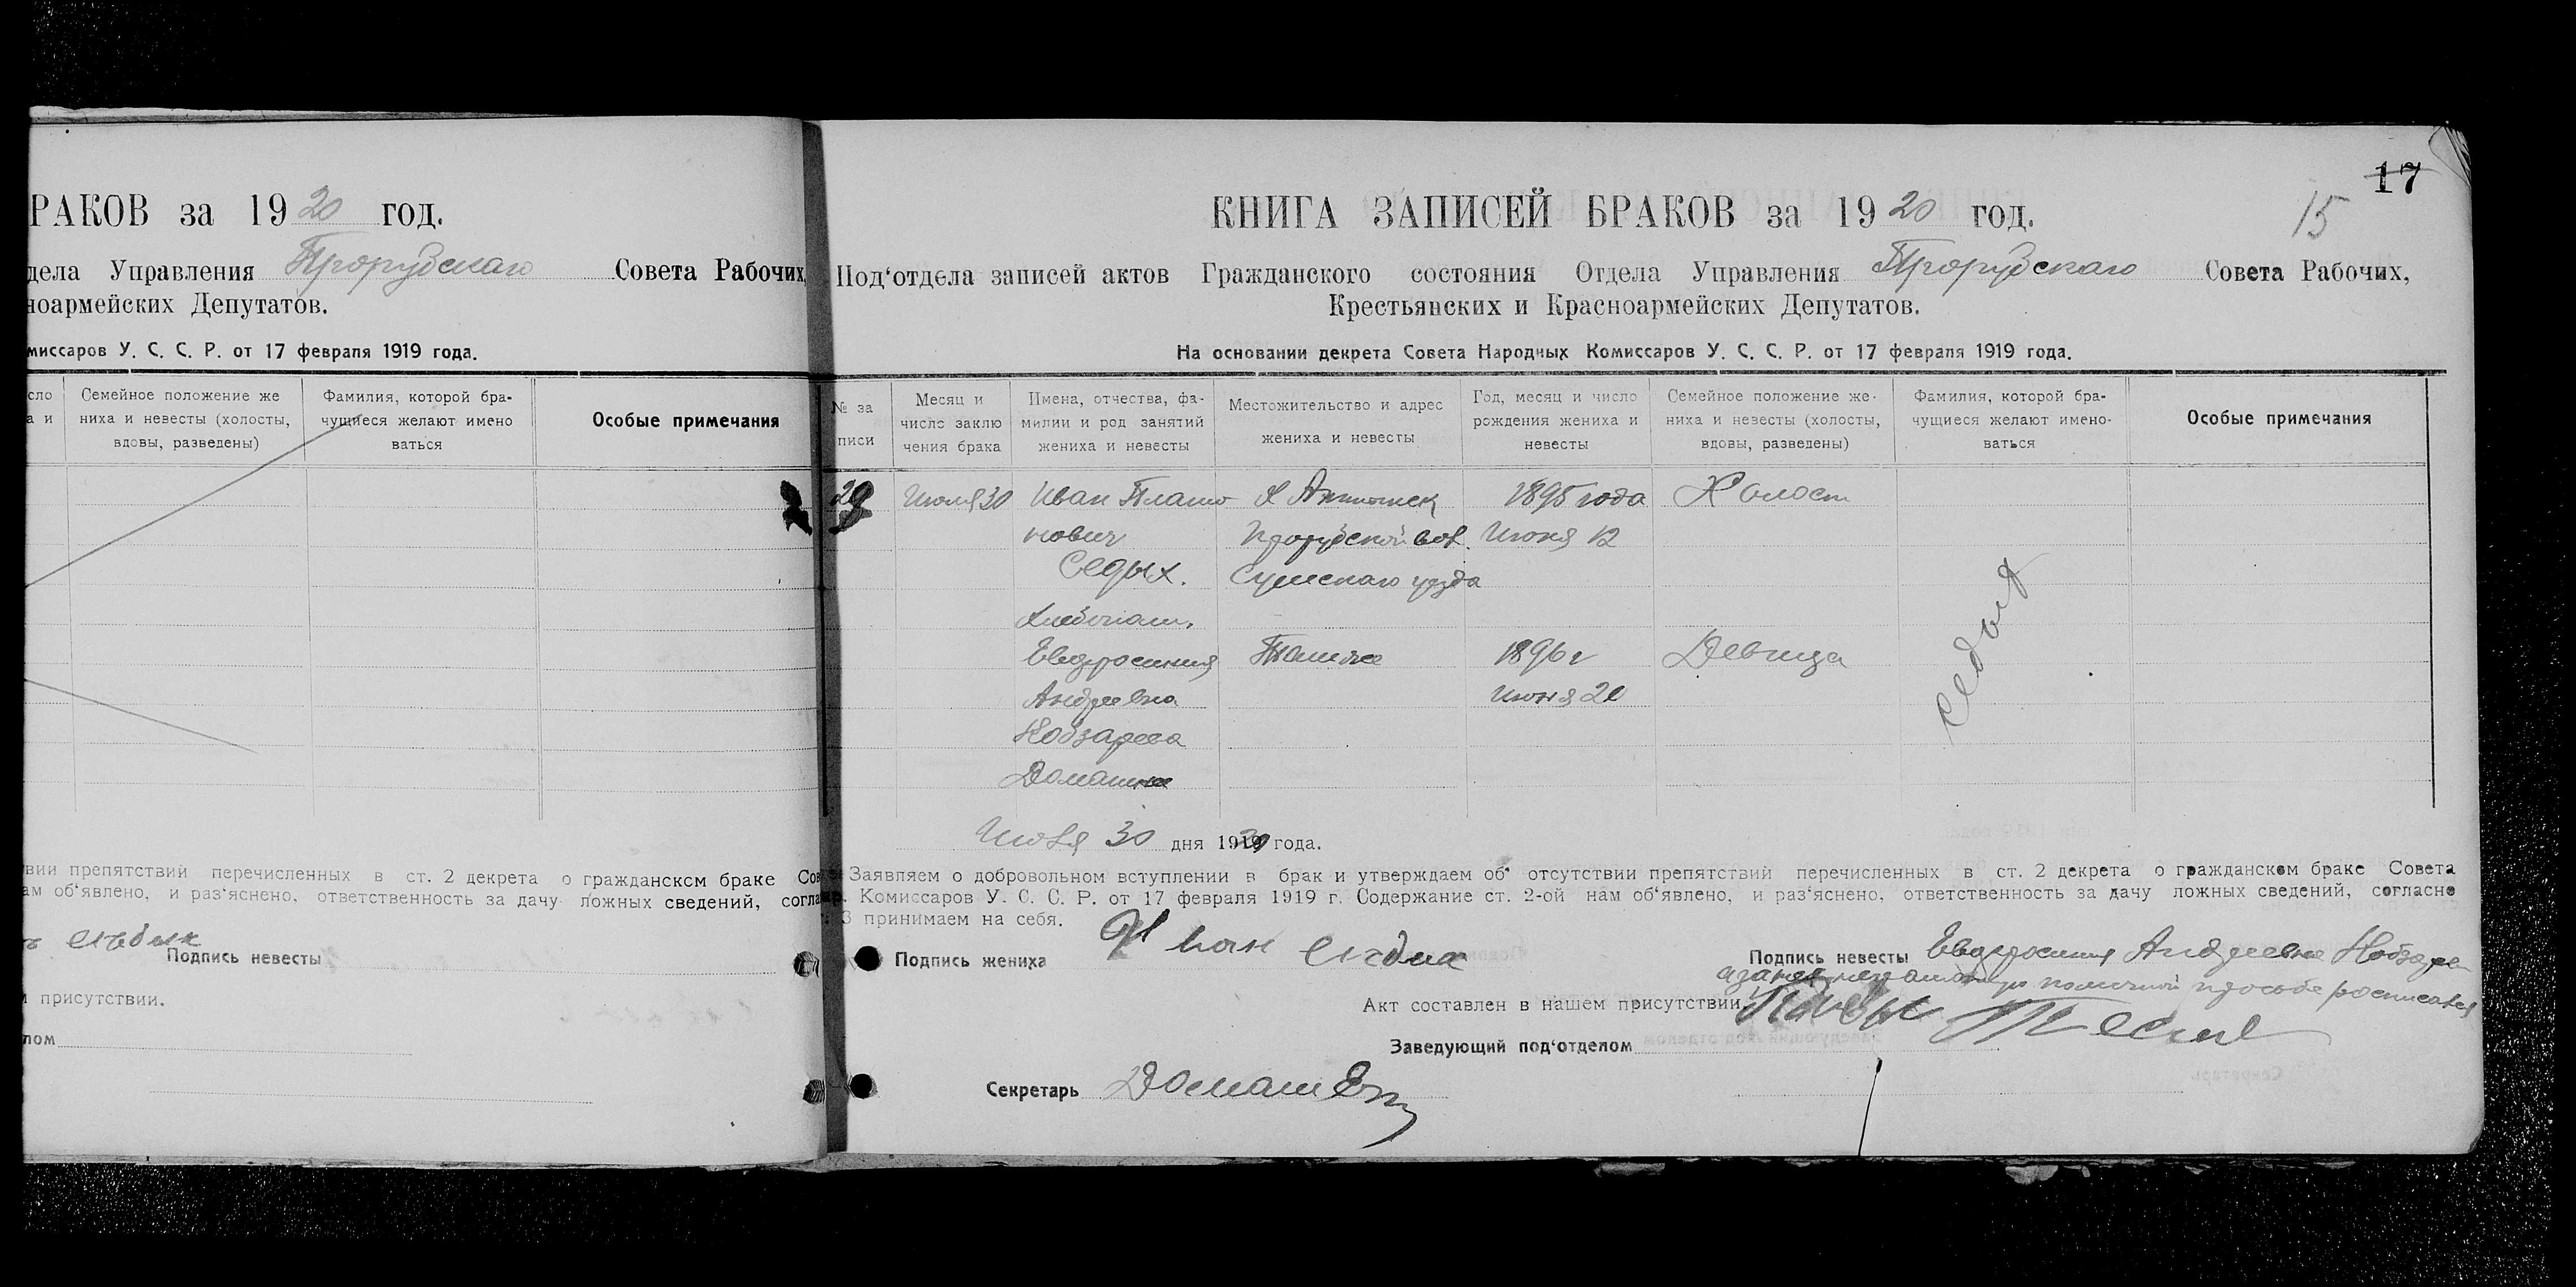 РАКОВ за 1920 год.
дела Управления Прорубскаго Совета Рабочих,
ноармейских Депутатов.
миссаров У. С. С. Р. от 17 февраля 1919 года.
сло
а и
Семейное положение же
ниха и невесты (холосты,
вдовы, разведены)
Фамилия, которой бра-
чущиеся желают имено
ваться
Особые примечания
вии препятствий перечисленных в ст. 2 декрета о гражданском браке Сов
ам об‘явлено, и раз‘яснено, ответственность за дачу ложных сведений, согла
Подпись невесты
и присутствии.
лом
17
15
КНИГА ЗАПИСЕЙ БРАКОВ за 1920 год.
Под‘отдела записей актов Гражданского состояния Отдела Управления Прорубскаго Совета Рабочих,
Крестьянских и Красноармейских Депутатов.
На основании декрета Совета Народных Комиссаров У. С. С. Р. от 17 февраля 1919 года.
№ за
писи
Месяц и
число заклю
чения брака
Имена, отчества, фа-
милии и род занятий
жениха и невесты
Местожительство и адрес
жениха и невесты
Год, месяц и число
рождения жениха и
невесты
Семейное положение же-
ниха и невесты (холосты,
вдовы, разведены)
Фамилия, которой бра-
чущиеся желают имено-
ваться
Особые примечания
Июля 30
Иван Плато
нович
Седых.
Хлебопаш.
Прорубской вол.
Сумскаго уезда
1895 года
Июня 12
Холост
Евдросиния
Андреевна
Кобзарева
Домашне
Тоже
1896 г
Июня 20
Девица
Седых
Июля 30 дня 1920 года.
Заявляем о добровольном вступлении в брак и утверждаем об‘ отсутствии препятствий перечисленных в ст. 2 декрета о гражданском браке Совета
Комиссаров У. С. С. Р. от 17 февраля 1919 г. Содержание ст. 2-ой нам об‘явлено, и раз‘яснено, ответственность за дачу ложных сведений, согласно
3 принимаем на себя.
Подпись жениха Иван
Подпись невесты Евдросиния Андреевна Кобзарев
а за нея неграмотную по личной просьбе росписался
Акт составлен в нашем присутствии.
Заведующий под‘отделом
Секретарь